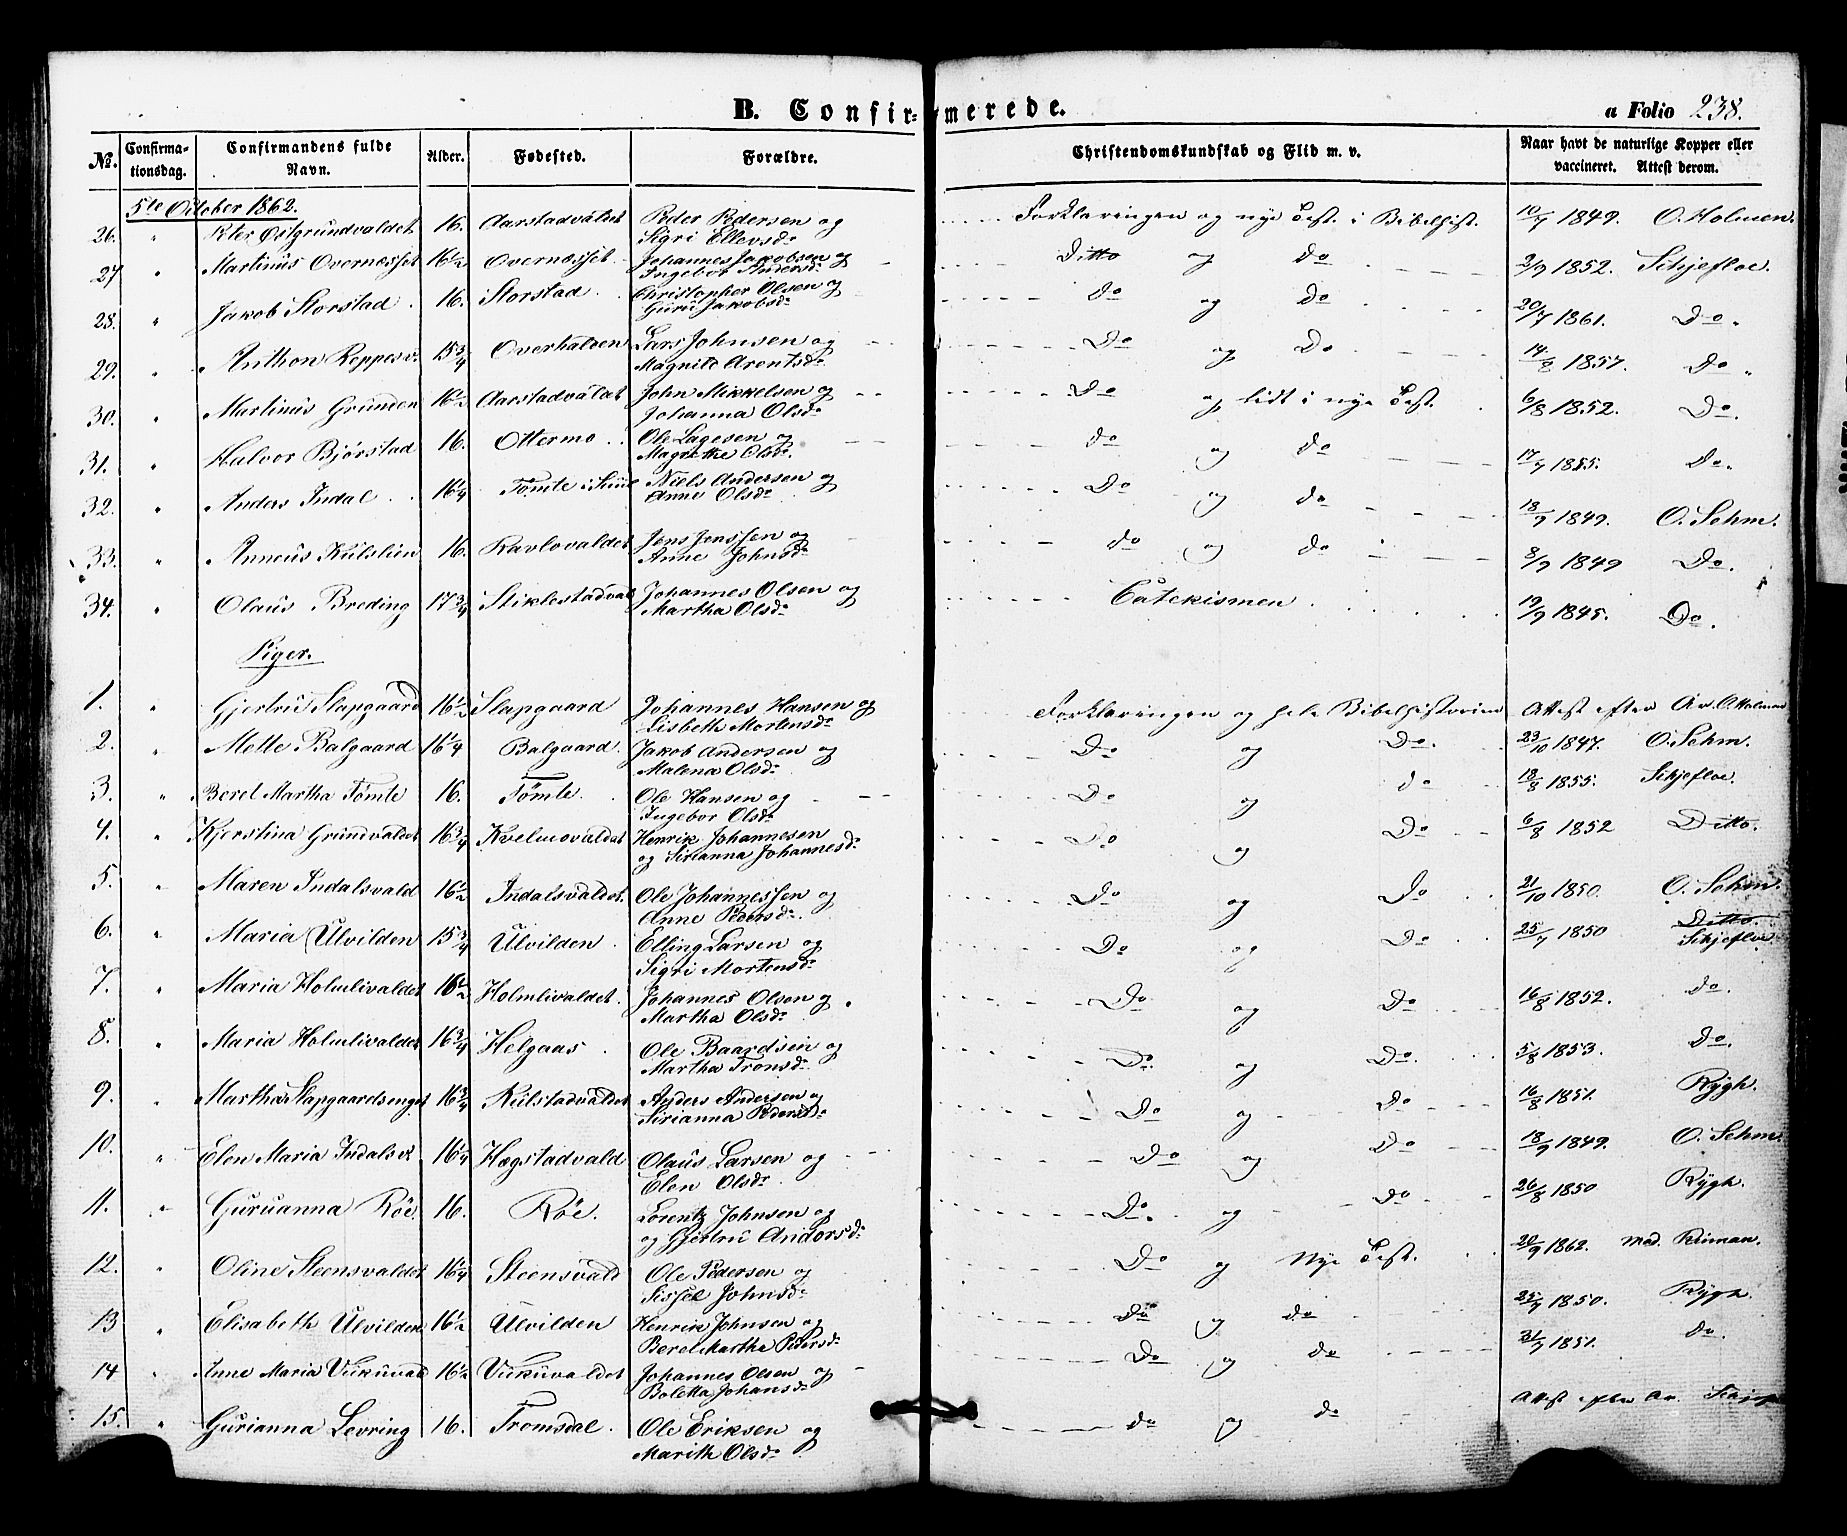 B. Confirmerede.
a Folio 238.
No. Confirmationsdag. Confirmandens fulde Navn. Alder. Fødested. Forældre. Christendomskundskab og Flid m. v. Naar havt de naturlige Kopper eller vaccineret. Attest derom.
5te October 1862.
26. " Peter Østgrundvaldet 16. Aarstadvaldet Peder Pedersen og Sigri Ellevsdr Forklaringen og nye Test. i Bibelhist. 10/7 1849. O. Holmen.
27 " Martinus Overnesset 16 1/2 Overnesset Johannes Jakobsen og Ingebor Andersdr Ditto og do 2/9 1852. Schjefloe.
28. " Jakob Storstad 16. Storstad Christopher Olsen og Guru Jakobsdr do og do 20/7 1861. Do.
29. " Anthon Reppesv. 15 3/4 Overhalden Lars Johnsen og Magnild Arentsdr Do og Do 14/8 1857. Do "
30. " Martinus Grunden 16 1/2 Aarstadvaldet John Mikkelsen og Johanna Olsdr Do og lidt i nye Test. 6/8 1852. Do.
31. " Halvor Bjørstad 16. Ottermo Ole Lagesen og Magrethe Olsdr do og do 17/7 1855. Do.
32. " Anders Indal 16 1/4 Tømte i Niels Andersen og Anne Olsdr Do og do 18/9 1849. O. Sehm.
33. " Anneus Kulslien 16. Ravlovaldet Jens Jenssen og Anne Johnsdr do og do 8/9 1849 Do.
34. " Olaus Breding 17 3/4 Stiklestadvald Johannes Olsen og Martha Olsdr Catekismen 19/9 1845. Do.
Piger.
1. " Gjertrù Slapgaard 16 1/2 Slapgaard Johannes Hansen og Lisbeth Mortensdr Forklaringen og hele Bibelhistorien Attest efter Av. O Holmen
2. " Mette Balgaard 16 1/4 Balgaard. Jakob Andersen og Malena Olsdr Do og Do. 23/10 1847. O. Sehm.
3. " Beret Martha Tømte 16. Tømte Ole Hansen og Ingebor Olsdr Do og do 18/8 1855. Schjefloe.
4. " Kjerstina Grundvaldet 16 3/4 Kvelmovaldet Henrik Johannesen og Sirianna Johannesdr Do og Do 6/8 1852 Ditto.
5. " Maren Indalsvald 16 1/2 Indalsvaldet. Ole Johannessen og Anne Pedersdr Do og Do 21/10 1850. O. Sehm.
6. " Maria Ulvilden 15 3/4 Ulvilden Elling Larsen og Sigri Mortensdr Do og Do 25/7 1850 Ditto. Schjefloe
7. " Maria Holmlivaldet 16 1/2 Holmlivaldet. Johannes Olsen og Martha Olsdr Do og Do 16/8 1852. do.
8. " Maria Holmlivaldet 16 3/4 Helgaas Ole Baardsen og Martha Tronsdr Do. og Do. 5/8 1853. Do.
9. " Martha Slapgaardsenget 16 3/4 Kulstadvaldet Anders Andersen og Sirianna Pedersdr Do og Do 16/8 1851. Rygh.
10. " Elen Maria Indalsv. 16 1/4 Hegstadvald Olaus Larsen og Elen Olsdr Do og Do 18/9 1849. O. Sehm.
11. " Guruanna Röe. 16. Röe. Lorentz Johnsen og og Gjertru Andorsdr Do. og Do 26/8 1850 Rygh.
12. " Oline Steensvaldet 16 1/4 Steensvald Ole Pedersen og Sissel Johnsdr Do og Nye Test. 20/9 1862. Med. Reiman.
13 " Elisabeth Ulvilden 16 1/2 Ulvilden Henrik Johnsen og Beret Martha Pedersdr Do og do 25/7 1850. Rygh.
14 " Anne Maria Vukuvald 16 1/2 Vukuvaldet Johannes Olsen og Boletta Johansdr Do og do 31/7 1851. do
15. " Gurianna Levring 16. Tromsdal. Ole Eriksen og Marith Olsdr do og do Attest efter Av.